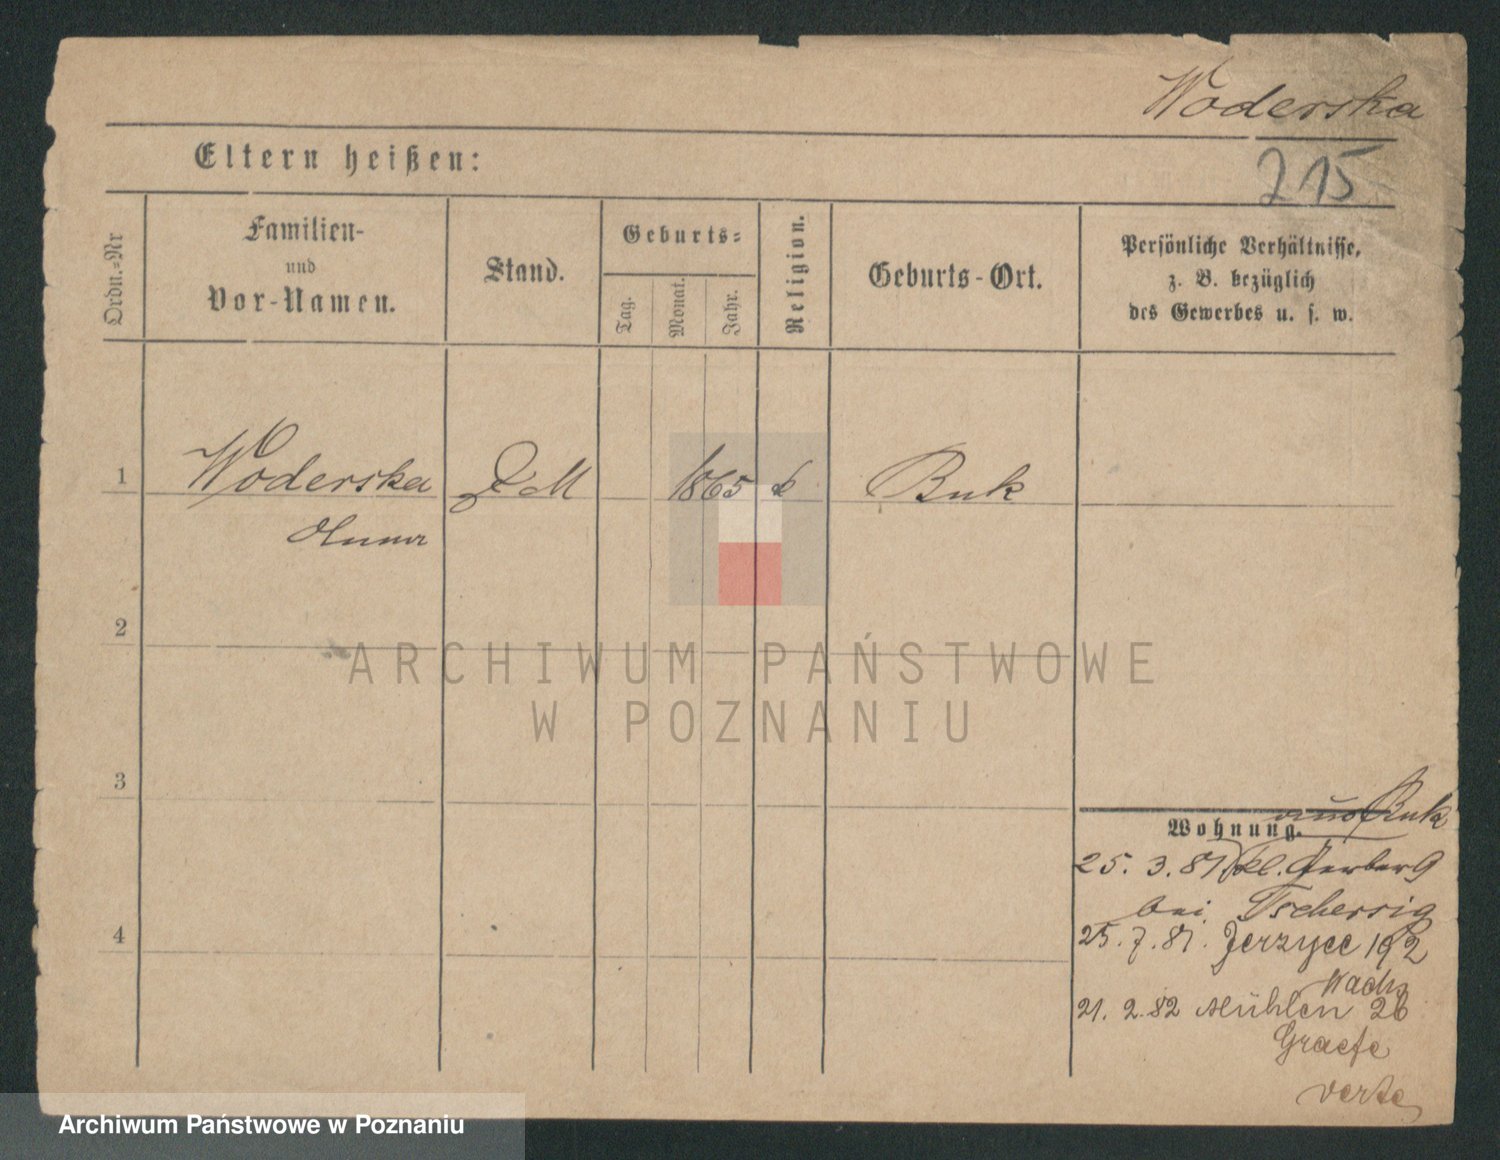 Woderska
215
Eltern heißen:
Ordn.=Nr
Familien-
und
Vor-Namen.
Stand.
Geburts=
Tag.
Monat.
Jahr.
Religion.
Geburts-Ort.
Persönliche Verhältnisse,
z. B. bezüglich
des Gewerbes u. s. w.
1
Woderska
DM
1865
k
Buk
Anna
2
ARCHIWUM PAŃSTWOWE
W POZNANIU
3
Buk
Wohnung.
25. 3. 81 kl. Gerber 9
bei Tscherrig
25. 7. 81. Jerzyce 192
Wachs
21. 2. 82 Mühlen 26
Graefe
verte
4
Archiwum Państwowe w Poznaniu